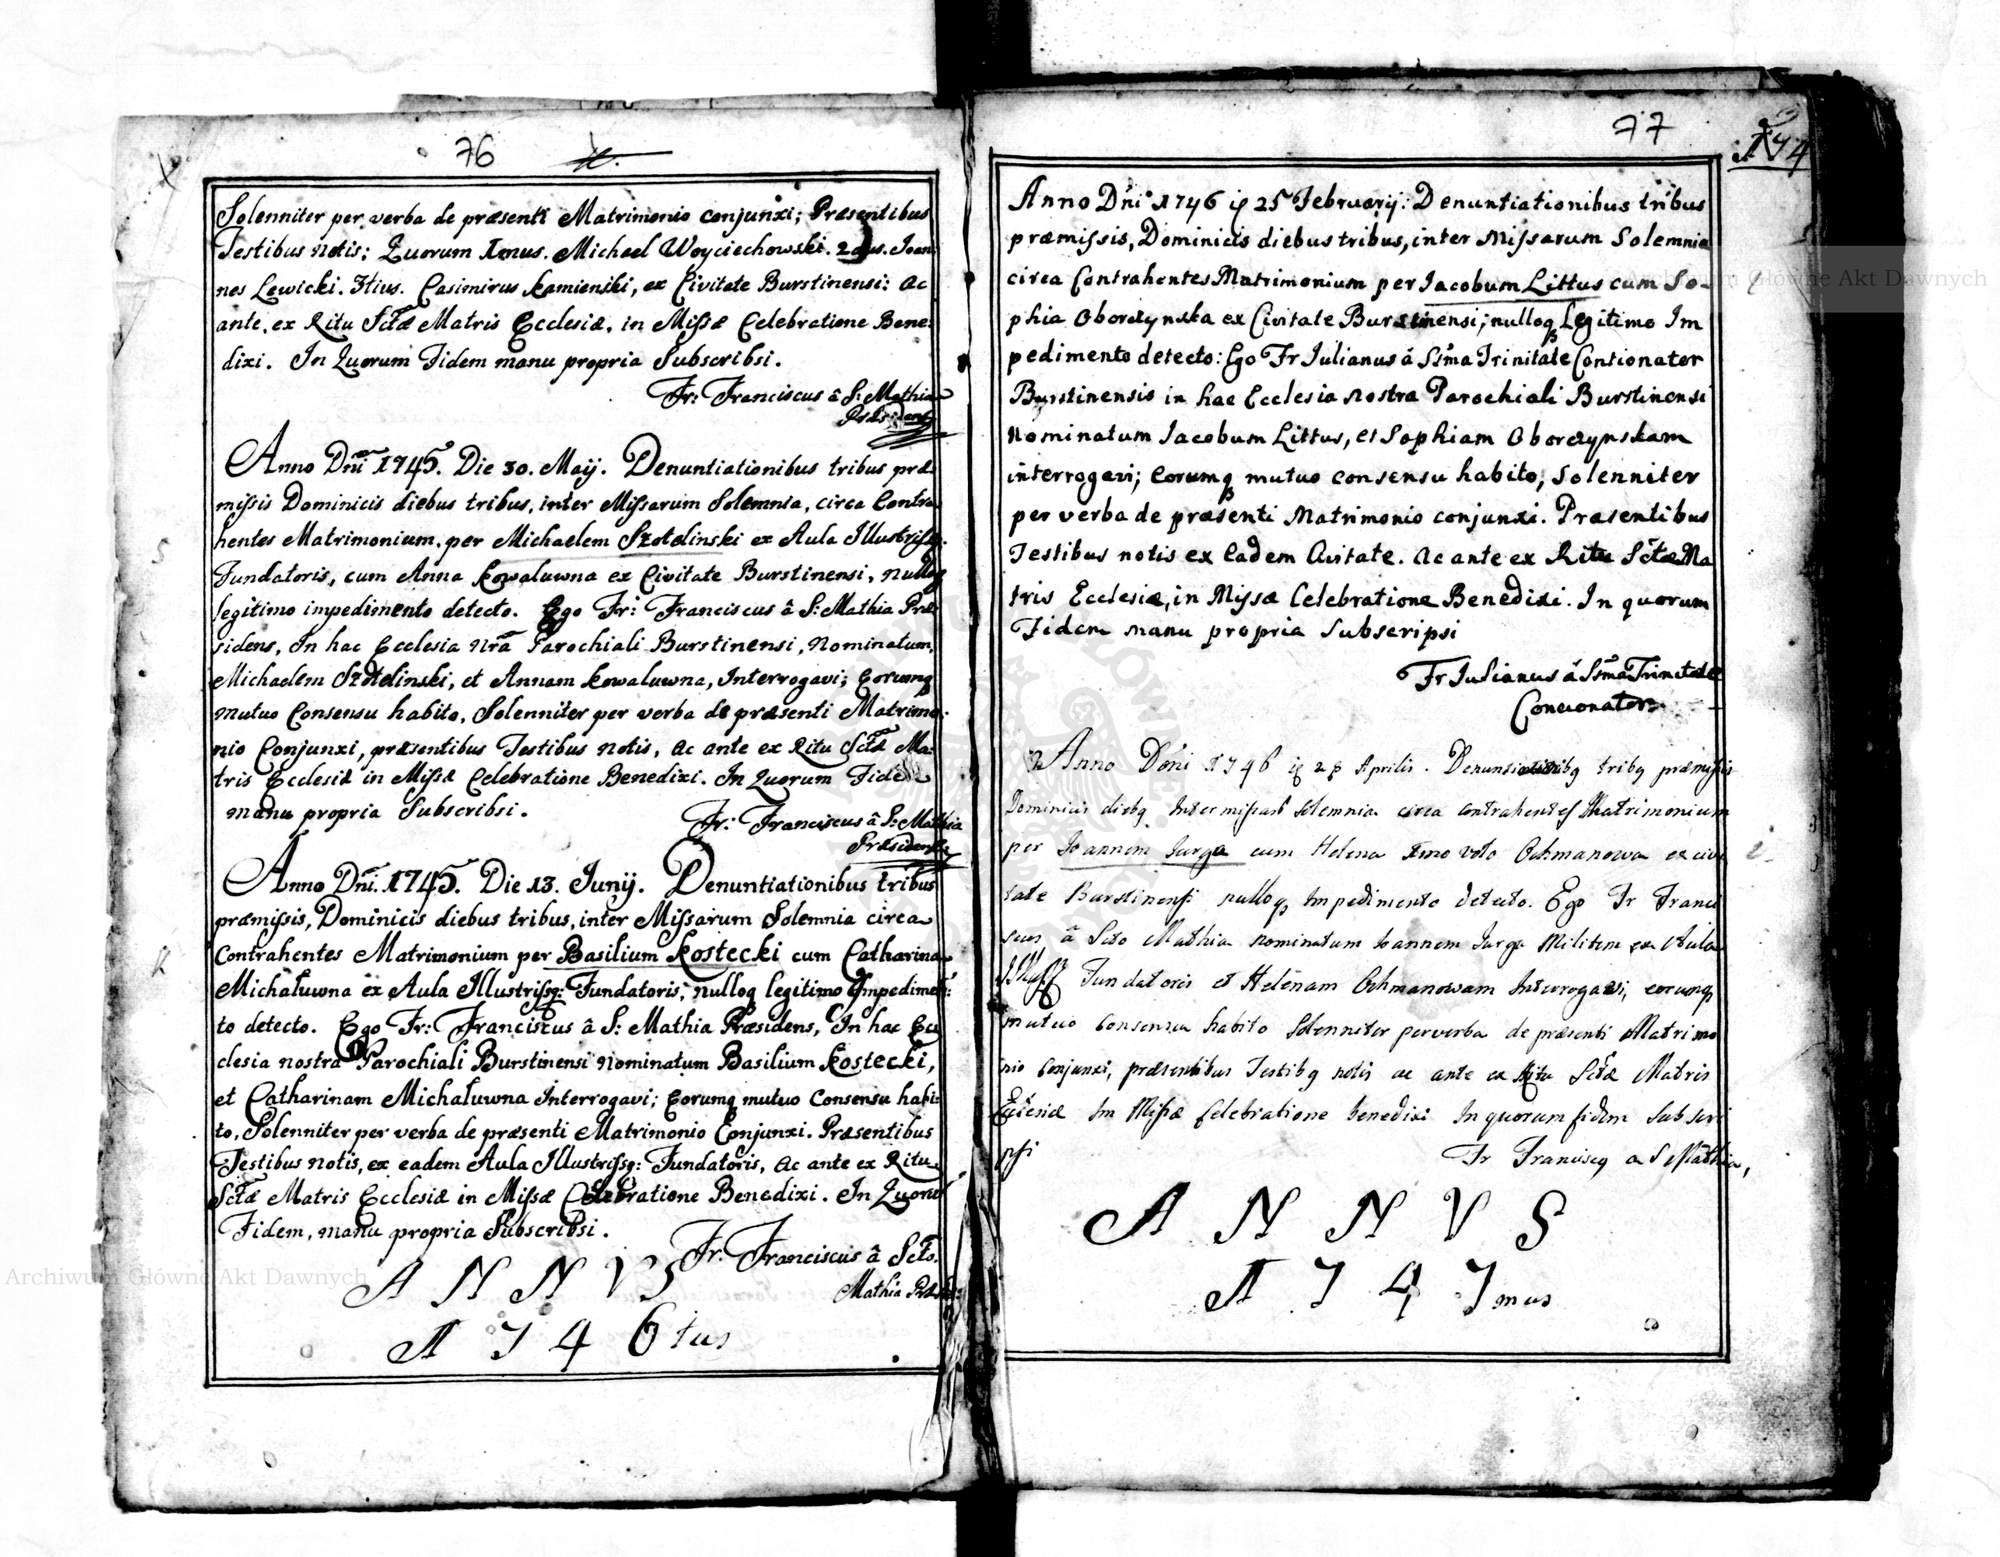 76
Solenniter per verba de præsenti Matrimonio conjunxi; Præsentibus
Testibus notis; Quorum 1mus. Michael Woyciechowski. 2dus. Joan
nes Lewicki. 3tius. Casimirus Kamienski, ex Civitate Burstinensi: ac
ante, ex Ritu Sctæ Matris Ecclesiæ, in Missæ Celebratione Bene:
dixi. In Quorum Fidem manu propria Subscribsi.
Fr: Franciscus â S: Mathia
Præsidens
Anno Dni 1745. Die 30. Maij. Denuntiationibus tribus præ
missis Dominicis diebus tribus, inter Missarum Solemnia, circa Contra
hentes Matrimonium. per Michaelem Szotelinski ex Aula Illustriss:
Fundatoris, cum Anna Kowaluwna ex Civitate Burstinensi, nulloq
legitimo impedimento detecto. Ego Fr: Franciscus â S: Mathia Præ
sidens, In hac Ecclesia nrã Parochiali Burstinensi, Nominatum,
Michaelem Szotelinski, et Annam Kowaluwna, Interrogavi; Eorumq
mutuo Consensu habito, Solenniter per verba de præsenti Matrimo:
nio Conjunxi, præsentibus Testibus notis, ac ante ex Ritu Sctæ Ma:
tris Ecclesiæ in Missæ Celebratione Benedixi. In Quorum Fidem
manu propria Subscribsi.
Fr: Franciscus â S: Mathia
Præsidens
Anno Dni. 1745. Die 13. Junij. Denuntiationibus tribus
præmissis, Dominicis diebus tribus, inter Missarum Solemnia circa
Contrahentes Matrimonium per Basilium Kostecki cum Catharina
Michałuwna ex Aula Illustrissq: Fundatoris, nulloq legitimo Impedimen:
to detecto. Ego Fr: Franciscus â S: Mathia Præsidens, In hac Ec
clesia nostra Parochiali Burstinensi Nominatum Basilium Kostecki,
et Catharinam Michałuwna Interrogavi; Eorumq mutuo Consensu habi:
to, Solenniter per verba de præsenti Matrimonio Conjunxi. Præsentibus
Testibus notis, ex eadem Aula Illustrissq: Fundatoris, ac ante ex Ritu
Sctæ Matris Ecclesiæ in Missæ Celebratione Benedixi. In Quorum
Fidem, manu propria Subscribsi.
Fr: Franciscus â Scto.
Mathia
ANNVS
1746tus
77
174
Anno Dni 1746 ig 25 Februarij: Denuntiationibus tribus
præmissis, Dominicis diebus tribus, inter Missarum Solemnia
circa Contrahentes Matrimonium per Jacobum Littus cum So-
phia Oborczynska ex Civitate Burstinensi; nulloq Legitimo Im
pedimento detecto: Ego Fr Julianus â Ssma Trinitate Contionator
Burstinensis in hac Ecclesia nostra Parochiali Burstinensi
Nominatum Jacobum Littus, et Sophiam Oborczynskam
interrogavi; Eorumq mutuo consensu habito, Solenniter
per verba de præsenti Matrimonio conjunxi. Præsentibus
Testibus notis ex Eadem Civitate. Ac ante ex Ritu Sctæ Ma
tris Ecclesiæ, in Myssæ Celebratione Benedixi. In quorum
Fidem manu propria Subscripsi
Fr Julianus â Ssma Trinitate
Concionator
Anno Dni 1746 ig 28 Aprilis. Denunsiationibq tribq præmissis
Dominicis diebq Inter missarũ Solemnia circa contrahentes Matrimonium
per Joannem Jurga cum Helena 1mo voto Ochmanowa ex civi
tate Burstinensi nulloq Impedimento detecto. Ego Fr Franci
scus â Scto Mathia nominatum Joannem Jurga Militem ex Aula
Illustss Fundatoris et Helenam Ochmanowam Interrogavi, eorumq
mutuo consensu habito Solenniter per verba de præsenti Matrimo
nio Conjunxi, præsentibus Testibq notis ac ante ex Ritu Sctæ Matris
Ecclesiæ In Missæ Celebratione benedixi In quorum fidem Subscri
psi
Fr Franciscq a S Mathia,
ANNVS
1747mus
Archiwum Główne Akt Dawnych
Archiwum Główne Akt Dawnych